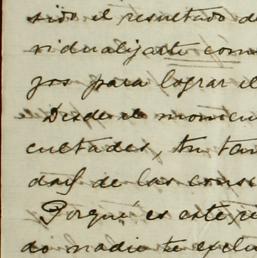 sido el resultado de
vidualizarte com
zos para lograr el
Desde el momen
cultades, tu tan
dad de las cons
Porqué es este re
do nadie te exclu